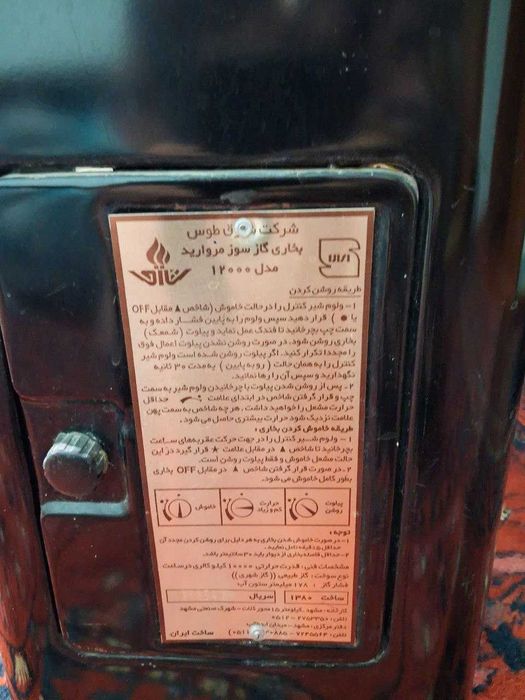 شرکت طوس
بخاری گاز سوز مروارید
مدل ۱۲۰۰۰
طریقه روشن کردن
۱- ولوم شیر کنترل را در حالت خاموش (شاخص ▲ مقابل OFF
یا ● ) قرار دهید سپس ولوم را به پایین فشار داده و به
سمت چپ بچرخانید تا فندک عمل نماید و پیلوت (شمعک)
بخاری روشن شود. در صورت روشن نشدن پیلوت اعمال فوق
را مجددا تکرار کنید. اگر پیلوت روشن شده است ولوم شیر
کنترل را به همان حالت (رو به پایین) به مدت ۳۰ ثانیه
نگهدارید و سپس آن را رها نمائید.
۲- پس از روشن شدن پیلوت با چرخاندن ولوم شیر به سمت
چپ و قرار گرفتن شاخص در ابتدای علامت حداقل
حرارت مشعل را خواهید داشت. هر چه شاخص به سمت پهن
علامت نزدیک شود حرارت بیشتری حاصل می شود.
طریقه خاموش کردن بخاری :
۱- ولوم شیر کنترل را در جهت حرکت عقربه های ساعت
بچرخانید تا شاخص ▲ در مقابل علامت ★ قرار گیرد در این
حالت مشعل خاموش و فقط پیلوت روشن است.
۲- در صورت قرار گرفتن شاخص ▲ در مقابل OFF بخاری
بطور کامل خاموش می شود.
پیلوت روشن
حرارت کم و زیاد
خاموش
توجه :
۱- در صورت خاموش شدن بخاری به هر دلیل برای روشن کردن مجدد آن
حداقل ۵ دقیقه تامل نمایید.
۲- حداقل فاصله بخاری از دیوار باید ۳۰ سانتیمتر باشد.
مشخصات فنی : قدرت حرارتی ۱۰۰۰۰ کیلو کالری در ساعت
نوع سوخت : گاز طبیعی (( گاز شهری ))
فشار گاز : ۱۷۸ میلیمتر ستون آب
ساخت ۱۳۸۰ سریال
کارخانه : مشهد - کیلومتر ۱۵ جاده کلات - شهرک صنعتی مشهد
تلفن : ۲۷۵۳۳۵۰-۰۵۱۲
دفتر مرکزی : مشهد - میدان
تلفن : ۷۲۴۵۵۶۳ ساخت ایران